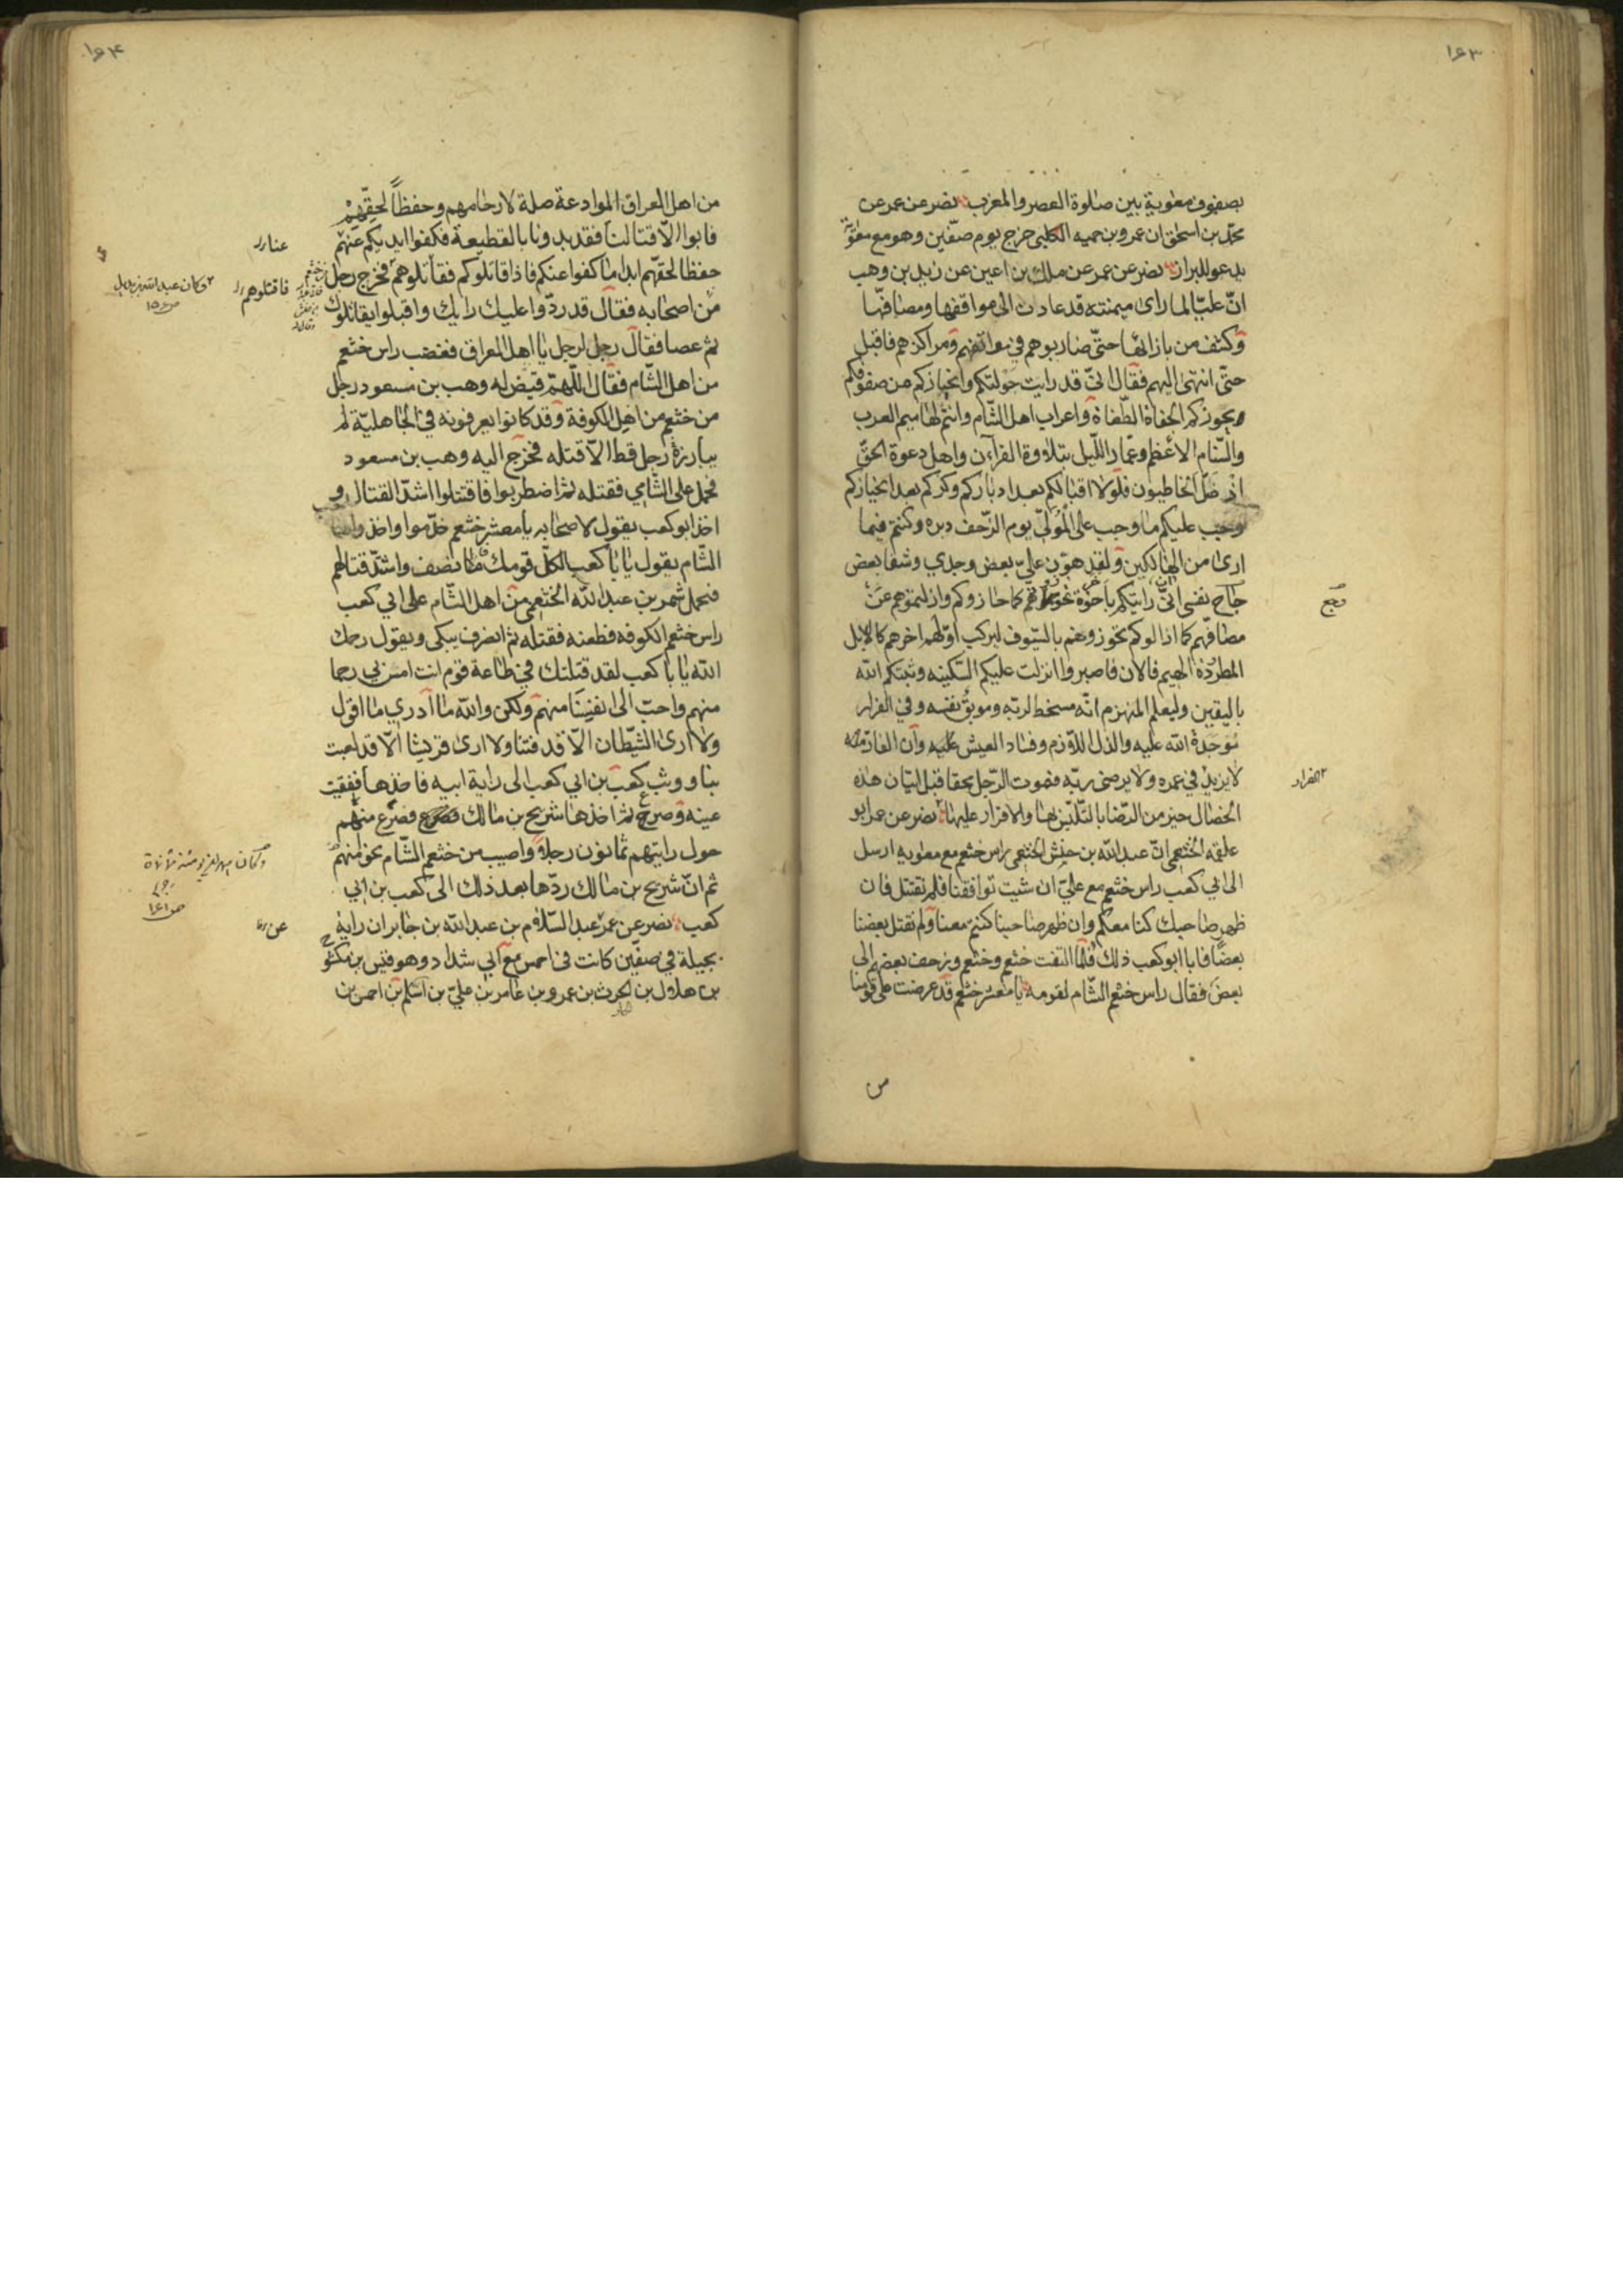 ١٦٣
بصفوف معوية بين صلوة العصر والمغرب نصر عن عمر عن
محمد بن اسحق ان عمرو بن حميه الكلبي خرج يوم صفّين وهو مع معوية
يدعو للبراز نصر عن عمر عن مالك بن اعين عن زيد بن وهب
انّ عليّا لما رأى ميمنته قد عادت الى مواقفها ومصافّها
وكشف من بازائها حتّى ضاربوهم في مواقفهم ومراكزهم فاقبل
حتّى انتهى اليهم فقال انّي قد رايت جولتكم وانحيازكم من صفوفكم
يحوزكم الجفاة الطّغاة واعراب اهل الشّام وانتم لهاميم العرب
والسّنام الأعظم وعمّار اللّيل بتلاوة القرآن واهل دعوة الحقّ
اذ ضلّ الخاطيون فلولا اقبالكم بعد ادباركم وكرّكم بعد انحيازكم
وجب عليكم ما وجب على المُولّي يوم الزّحف دبره وكنتم فيما
ارى من الهالكين ولقد هوّن عليّ بعض وجدي وشفا بعض
حاج نفسى انّي رايتكم باخرة حزتموهم كما حازوكم وازلتموهم عن
مصافّهم كما ازالوكم تحوزونهم بالسّيوف ليركب اوّلهم اخرهم كالابل
المطردة الهيم فالان فاصبروا انزلت عليكم السّكينه وثبّتكم الله
باليقين وليعلم المنهزم انّه مسخط لربّه وموبق نفسه وفي الفرار
مَوجَدة الله عليه والذلّ اللّازم وفساد العيش عليه وان الفارّ منه
لا يزيد في عمره ولا يرضى ربّه فموت الرّجل محقا قبل اتيان هذه
الخصال خير من الرّضا بالتّلبّس بها والاقرار عليها نصر عن عمر ابو
علقه الخثعمى انّ عبد الله بن حنش الخثعمى راس خثعم مع معوية ارسل
الى ابي كعب راس خثعم مع عليّ ان شيت توافقنا فلم نقتتل فان
ظهر صاحبك كنا معكم وان ظهر صاحبنا كنتم معنا ولم نقتل بعضنا
بعضًا فابا ابو كعب ذلك فلمّا التقت خثعم وخثعم وزحف بعضهم الى
بعض فقال راس خثعم الشّام لقومه يا معشر خثعم قد عرضت على قومنا
من
الفرار
١٦٤
من اهل العراق الموادعة صلة لارحامهم وحفظاً لحقّهم
فابوا الّا قتالنا فقد بدونا بالقطيعة فكفوا ايديكم عنهم
حفظا لحقّهم ابدا ما كفوا عنكم فاذا قاتلوكم فقاتلوهم فخرج رجل
من اصحابه فقال قد ردّوا عليك رايك واقبلوا يقاتلوك
ثم عصا فقال رجل لرجل يا اهل العراق فغضب راس خثعم
من اهل الشّام فقال اللّهمّ قيّض له وهب بن مسعود رجل
من خثعم من اهل الكوفة وقد كانوا يعرفونه في الجاهليّة لم
يبارزه رجل قط الّا قتله فخرج اليه وهب بن مسعود
فحمل على الشّامي فقتله ثم اضطربوا فاقتتلوا اشدّ القتال و
اخذ ابو كعب يقول لاصحابه يا معشر خثعم خدّموا واخذ
الشّام يقول يا با كعب الكلّ قومك فانصف واشتدّ قتالهم
فحمل شمر بن عبد الله الخثعمى من اهل الشّام على ابي كعب
راس خثعم الكوفه فطعنه فقتله ثم انصرف يبكى ويقول رحمك
الله يا با كعب لقد قتلتك في طاعة قوم انت امسّ بي رحما
منهم واحبّ الى نفسًا منهم ولكن والله ما ادري ما اقول
ولا ارى الشّيطان الّا قد فتننا ولا ارى قريشا الّا قد لعبت
بنا ووثب كعب بن ابي كعب الى راية ابيه فاخذها ففقيت
عينه وصرع ثم اخذها شريح بن مالك فصرع منهم
حول رايتهم ثمانون رجلا واصيب من خثعم الشّام نحو منهم
ثم انّ شريح بن مالك ردّها بعد ذلك الى كعب بن ابي
كعب نصر عن عمر عبد السّلام بن عبد الله بن جابر ان راية
بجيلة في صفّين كانت في احمس مع ابي شداد وهو قيس بن مكشوح
بن هلال بن الحرث بن عمرو بن عامر بن عليّ بن اسلم بن احمس بن
فاقتلوهم
وكان عبد الله بن بديل